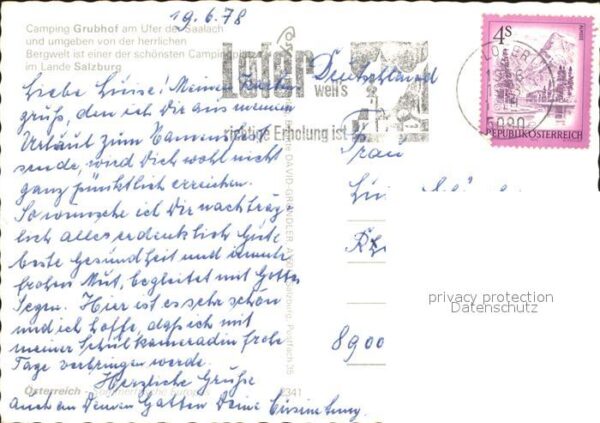 19.6.78
Camping Grubhof am Ufer der Saalach
und umgeben von der herrlichen
Bergwelt ist einer der schönsten Campingplätze
im Lande Salzburg
Liebe Luise! Meinen
gruß, den ich Dir aus meinem
Urlaub zum Namensfest
sende, wird Dich wohl nicht
ganz pünktlich erreichen.
So wünsche ich Dir nachträg
lich alles erdenklich Gute
beste Gesundheit und immer
frohen Mut, begleitet mit Gottes
Segen. Hier ist es sehr schön
und ich hoffe, daß ich mit
meiner Schulkameradin frohe
Tage verbringen werde.
Herzliche Grüße
auch an Deinen Gatten Deine
Österreich
2341
Lofer
weil's
richtige Erholung ist
4S
REPUBLIK ÖSTERREICH
5090
Deutschland
Frau
8900
privacy protection
Datenschutz